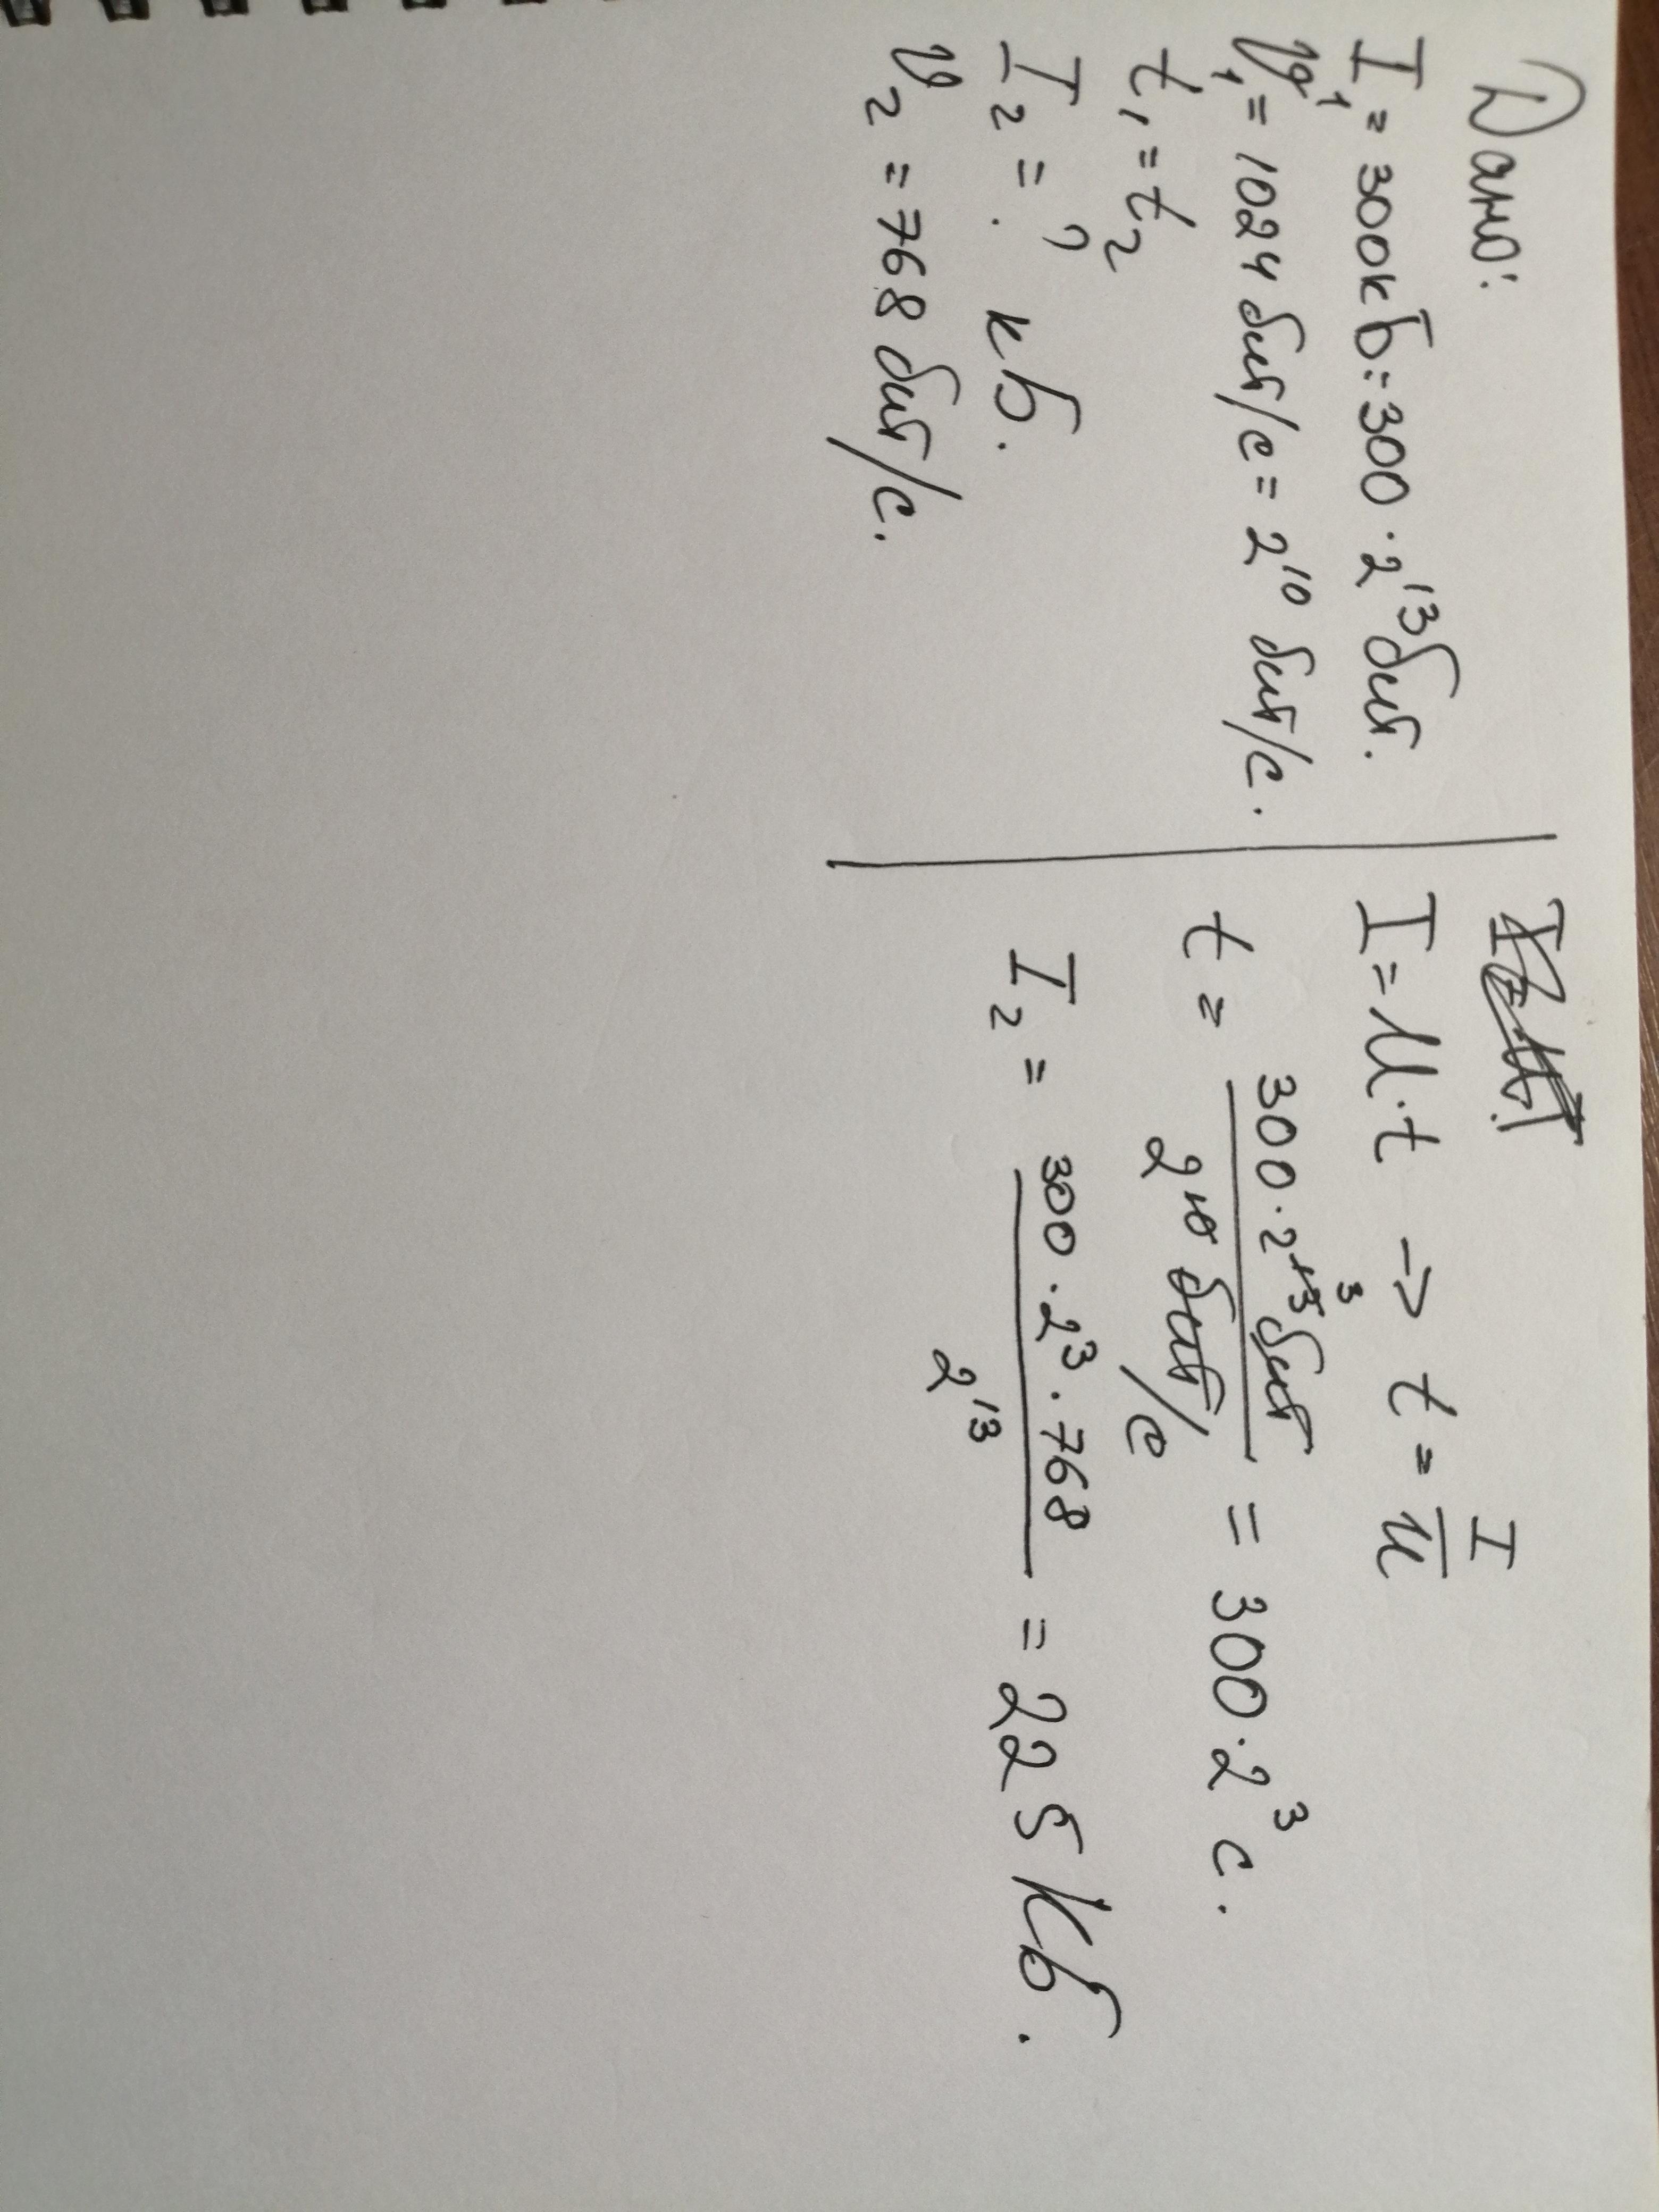 Дано:
I₁ = 300кБ = 300 · 2¹³ бит.
υ₁ = 1024 бит/с = 2¹⁰ бит/с.
t₁ = t₂
I₂ = ? кб.
υ₂ = 768 бит/с.
I = U · t → t = I/U
t = 300 · 2¹³ ³ бит / 2¹⁰ бит/с = 300 · 2³ с.
I₂ = 300 · 2³ · 768 / 2¹³ = 225 Кб.